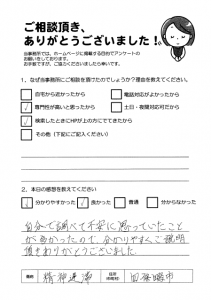 ご相談頂き、
ありがとうございました！
当事務所では、ホームページに掲載する目的でアンケートの
お願いをしております。
お手数ですが、ご協力くださいましたら幸いです。
1、なぜ当事務所にご相談を頂けたのでしょうか？理由を教えてください。
自宅から近かったから
電話対応がよかったから
専門性が高いと思ったから
土日・夜間対応可だから
検索したときにHPが上の方にでてきたから
その他（下記にご記入ください）
2、本日の感想を教えてください
分かりやすかった
良かった
普通
分からなかった
自分で調べて不安に思っていたこと
が多かったので、分かりやすくご説明
頂きありがとうございました
事例
精神遅滞
住所
四條畷市